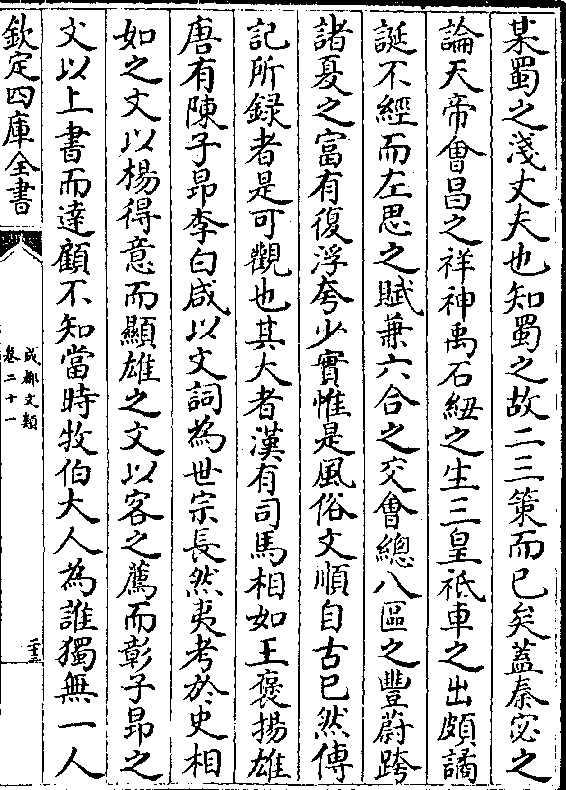 某蜀之淺丈夫也知蜀之故二三策而已矣蓋秦宓之
論天帝會昌之祥神禹石紐之生三皇祇車之出頗譎
誕不經而左思之賦兼六合之交會總八區之豐蔚跨
諸夏之富有復浮夸少實惟是風俗文順自古已然傳
記所録者是可觀也其大者漢有司馬相如王褒揚雄
唐有陳子昂李白咸以文詞為世宗長然夷考於史相
如之文以楊得意而顯雄之文以客之薦而彰子昂之
文以上書而達顧不知當時牧伯大人為誰獨無一人
欽定四庫全書
成都文類
卷二十一
二十三